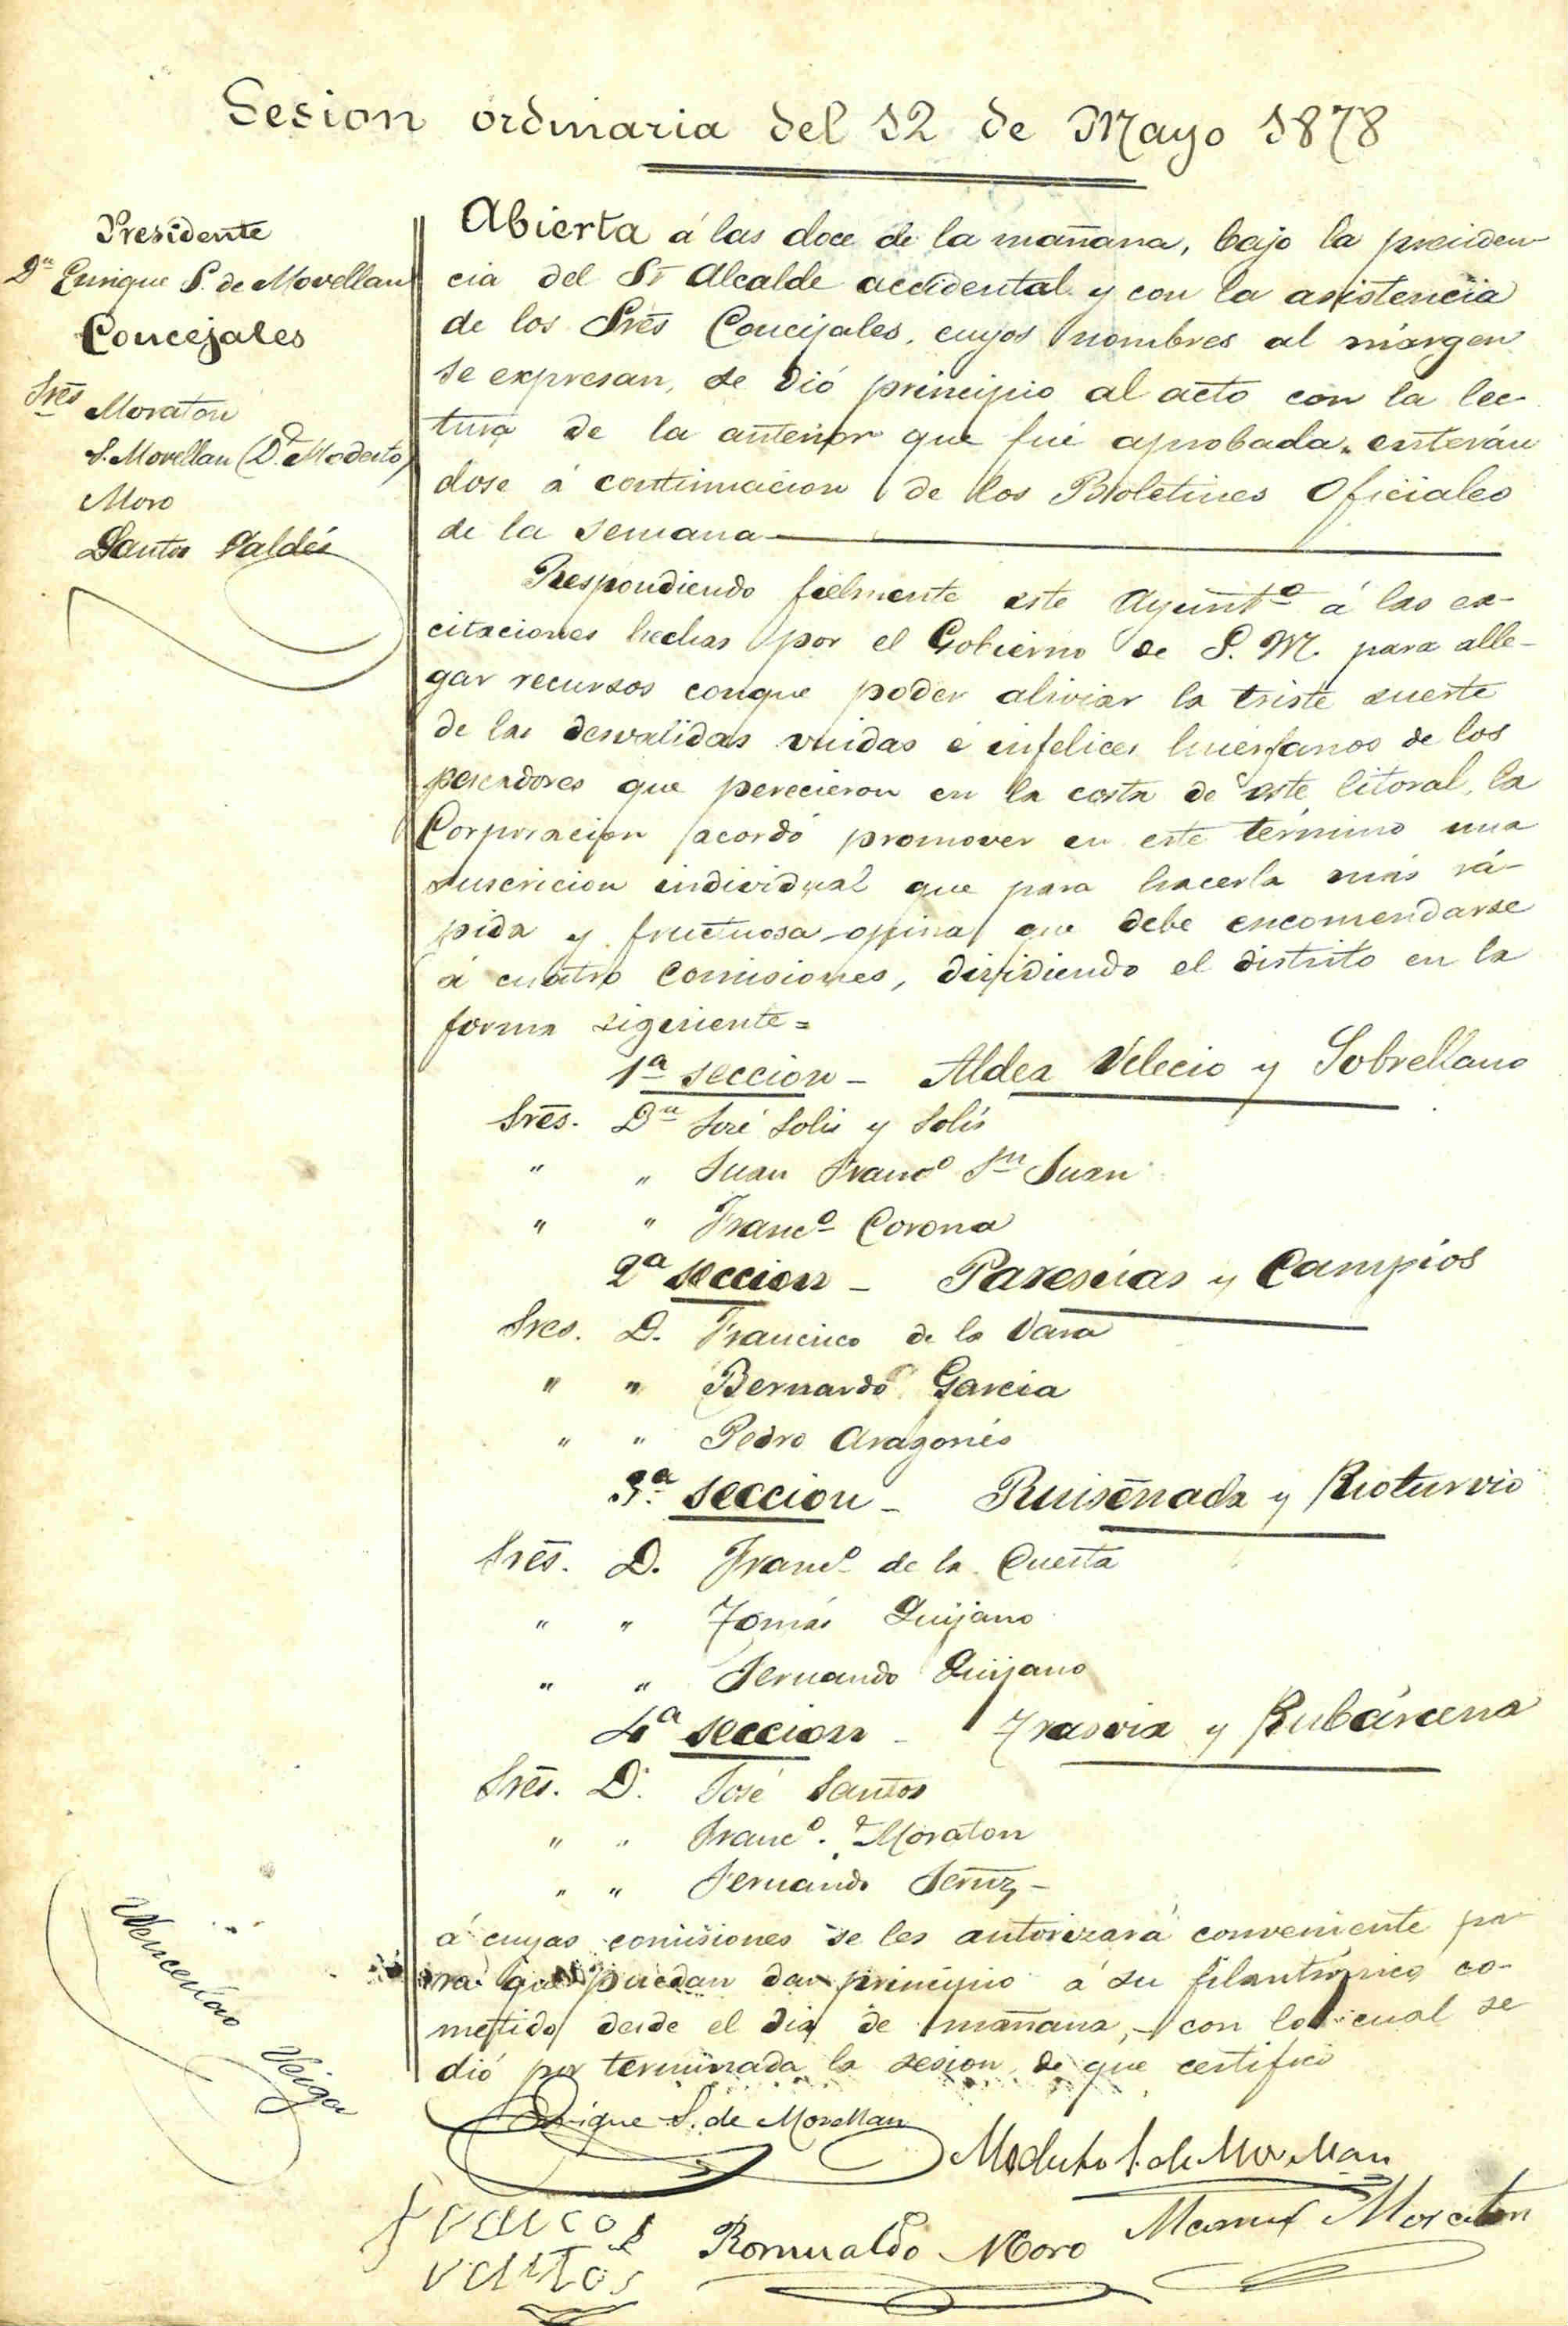 Sesion ordinaria del 12 de Mayo 1878
Presidente
Dn Enrique S. de Movellan
Concejales
Sres
Moraton
S. Movellan (Dn. Modesto)
Moro
Santos Valdés
Abierta á las doce de la mañana, bajo la presiden-
cia del Sr Alcalde accidental y con la asistencia
de los Sres Concejales, cuyos nombres al márgen
se expresan, se dió principio al acto con la lec-
tura de la anterior que fué aprobada, enterán
dose á continuacion de los Boletines Oficiales
de la semana
Respondiendo fielmente este Ayuntº á las ex-
citaciones hechas por el Gobierno de S. M. para alle-
gar recursos conque poder aliviar la triste suerte
de las desvalidas viudas é infelices huérfanos de los
pescadores que perecieron en la costa de este litoral, la
Corporacion acordó promover en este término una
suscricion individual que para hacerla más rá-
pida y fructuosa opina que debe encomendarse
á cuatro comisiones, dividiendo el distrito en la
forma siguiente=
1ª seccion - Aldea Velecio y Sobrellano
Sres. Dn José Solis y Solís
" " Juan Francº Sn Juan
" " Francº Corona
2ª seccion - Paresúas y Campíos
Sres. D. Francisco de la Vara
" " Bernardo Garcia
" " Pedro Aragonés
3ª seccion - Ruiseñada y Rioturvio
Sres. D. Francº de la Cuesta
" " Tomás Quijano
" " Fernando Quijano
4ª seccion - Trasvia y Rubárcena
Sres. D. José Santos
" " Francº. Moraton
" " Fernando Fernz -
á cuyas comisiones se les autorizará conveniente pa-
ra que puedan dar principio á su filantrópico co-
metido desde el dia de mañana, con lo cual se
dió por terminada la sesion de que certifico
Enrique S. de Movellan
Modesto S. de Movellan
Francos
Santos
Romualdo Moro
Manuel Moraton
Wenceslao Veiga